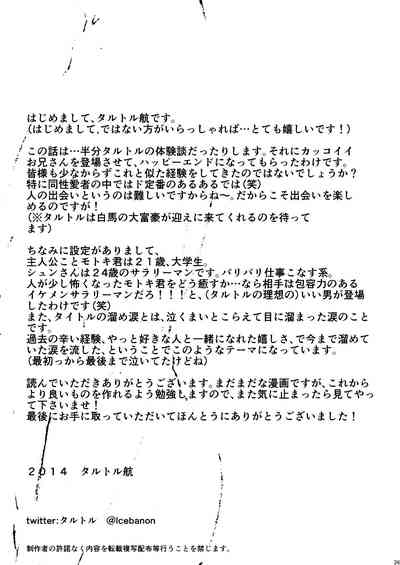 はじめまして、タルトル航です。
(はじめまして、ではない方がいらっしゃれば…とても嬉しいです！)
この話は…半分タルトルの体験談だったりします。それにカッコイイ
お兄さんを登場させて、ハッピーエンドになってもらったわけです。
皆様も少なからずこれと似た経験をしてきたのではないでしょうか？
特に同性愛者の中ではド定番のあるあるでは(笑)
人の出会いというのは難しいですからね〜。だからこそ出会いを楽し
めるのですが！
(※タルトルは白馬の大富豪が迎えに来てくれるのを待って
ます)
ちなみに設定がありまして、
主人公ことモトキ君は２１歳、大学生。
シュンさんは２４歳のサラリーマンです。バリバリ仕事こなす系。
人が少し怖くなったモトキ君をどう癒すか…なら相手は包容力のある
イケメンサラリーマンだろ！！！と、(タルトルの理想の)いい男が登場
したわけです(笑)
また、タイトルの溜め涙とは、泣くまいとこらえて目に溜まった涙のこと
です。
過去の辛い経験、やっと好きな人と一緒になれた嬉しさ、で今まで溜めて
いた涙を流した、ということでこのようなテーマになっています。
(最初っから最後まで泣いてたけどね)
読んでいただきありがとうございます。まだまだな漫画ですが、これから
より良いものを作れるよう勉強しますので、また気に止まったら見てやっ
て下さいませ！
最後にお手に取っていただいてほんとうにありがとうございました！
２０１４　タルトル航
twitter:タルトル　@Icebanon
制作者の許諾なく内容を転載複写配布等行うことを禁じます。